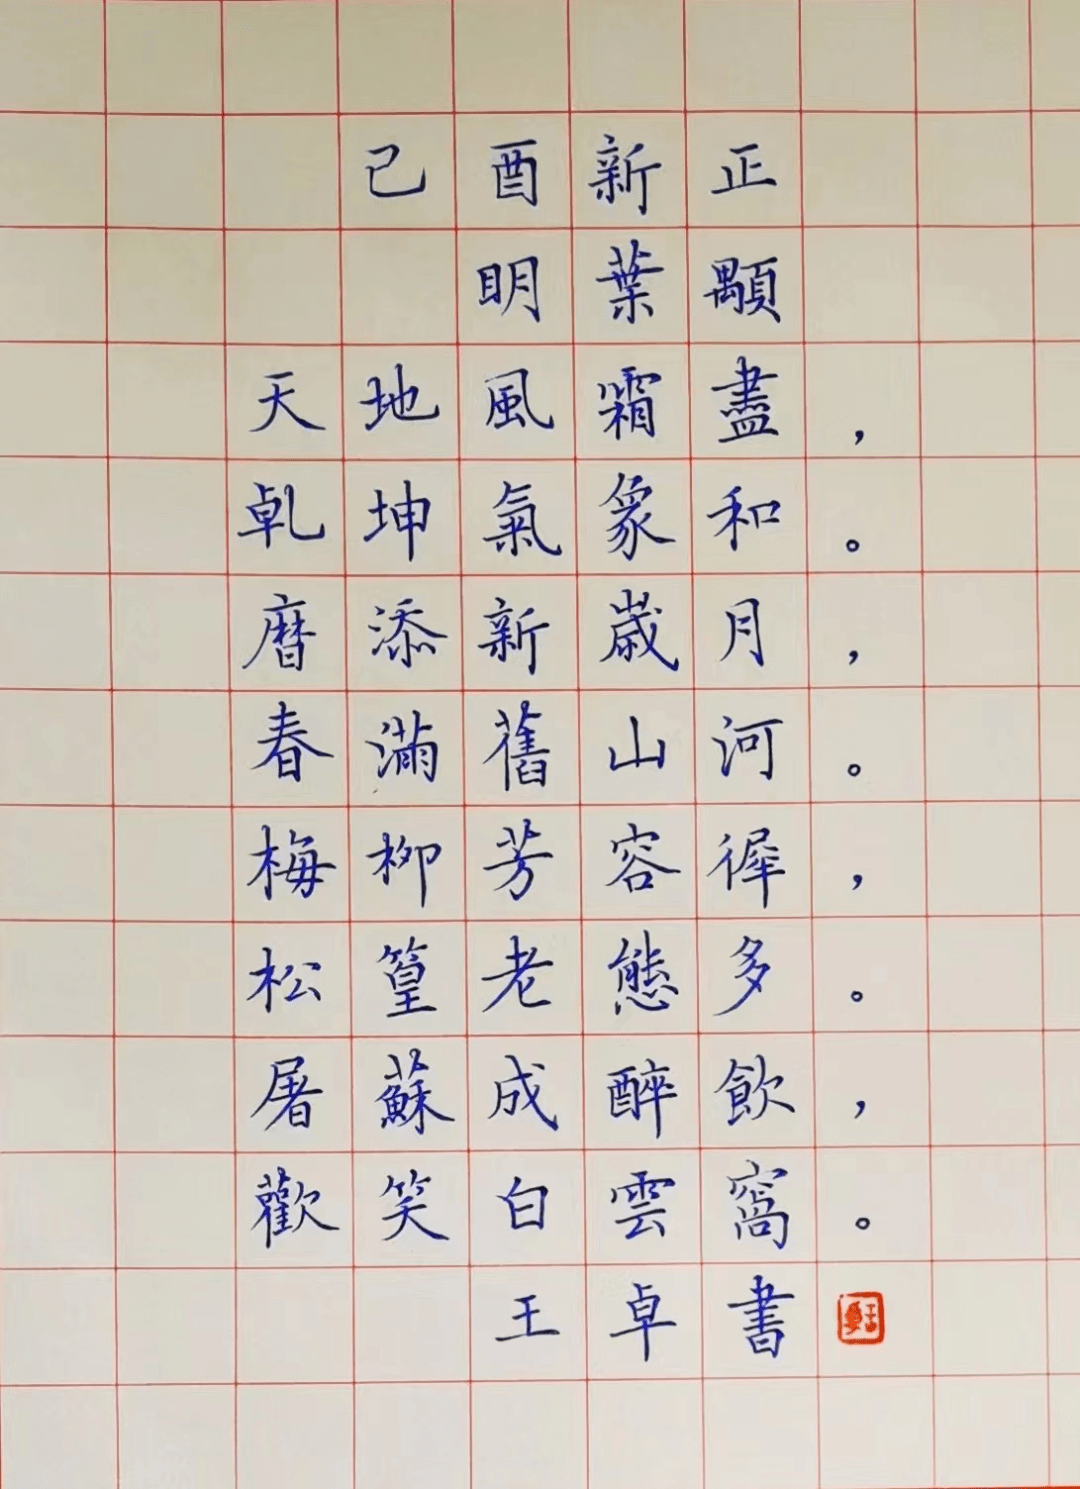 己酉新正
明葉顒
天地風霜盡，
乹坤氣象和。
暦添新歳月，
春滿舊山河。
梅柳芳容徲，
松篁老態多。
屠蘇成醉飲，
歡笑白雲窩。
王卓書